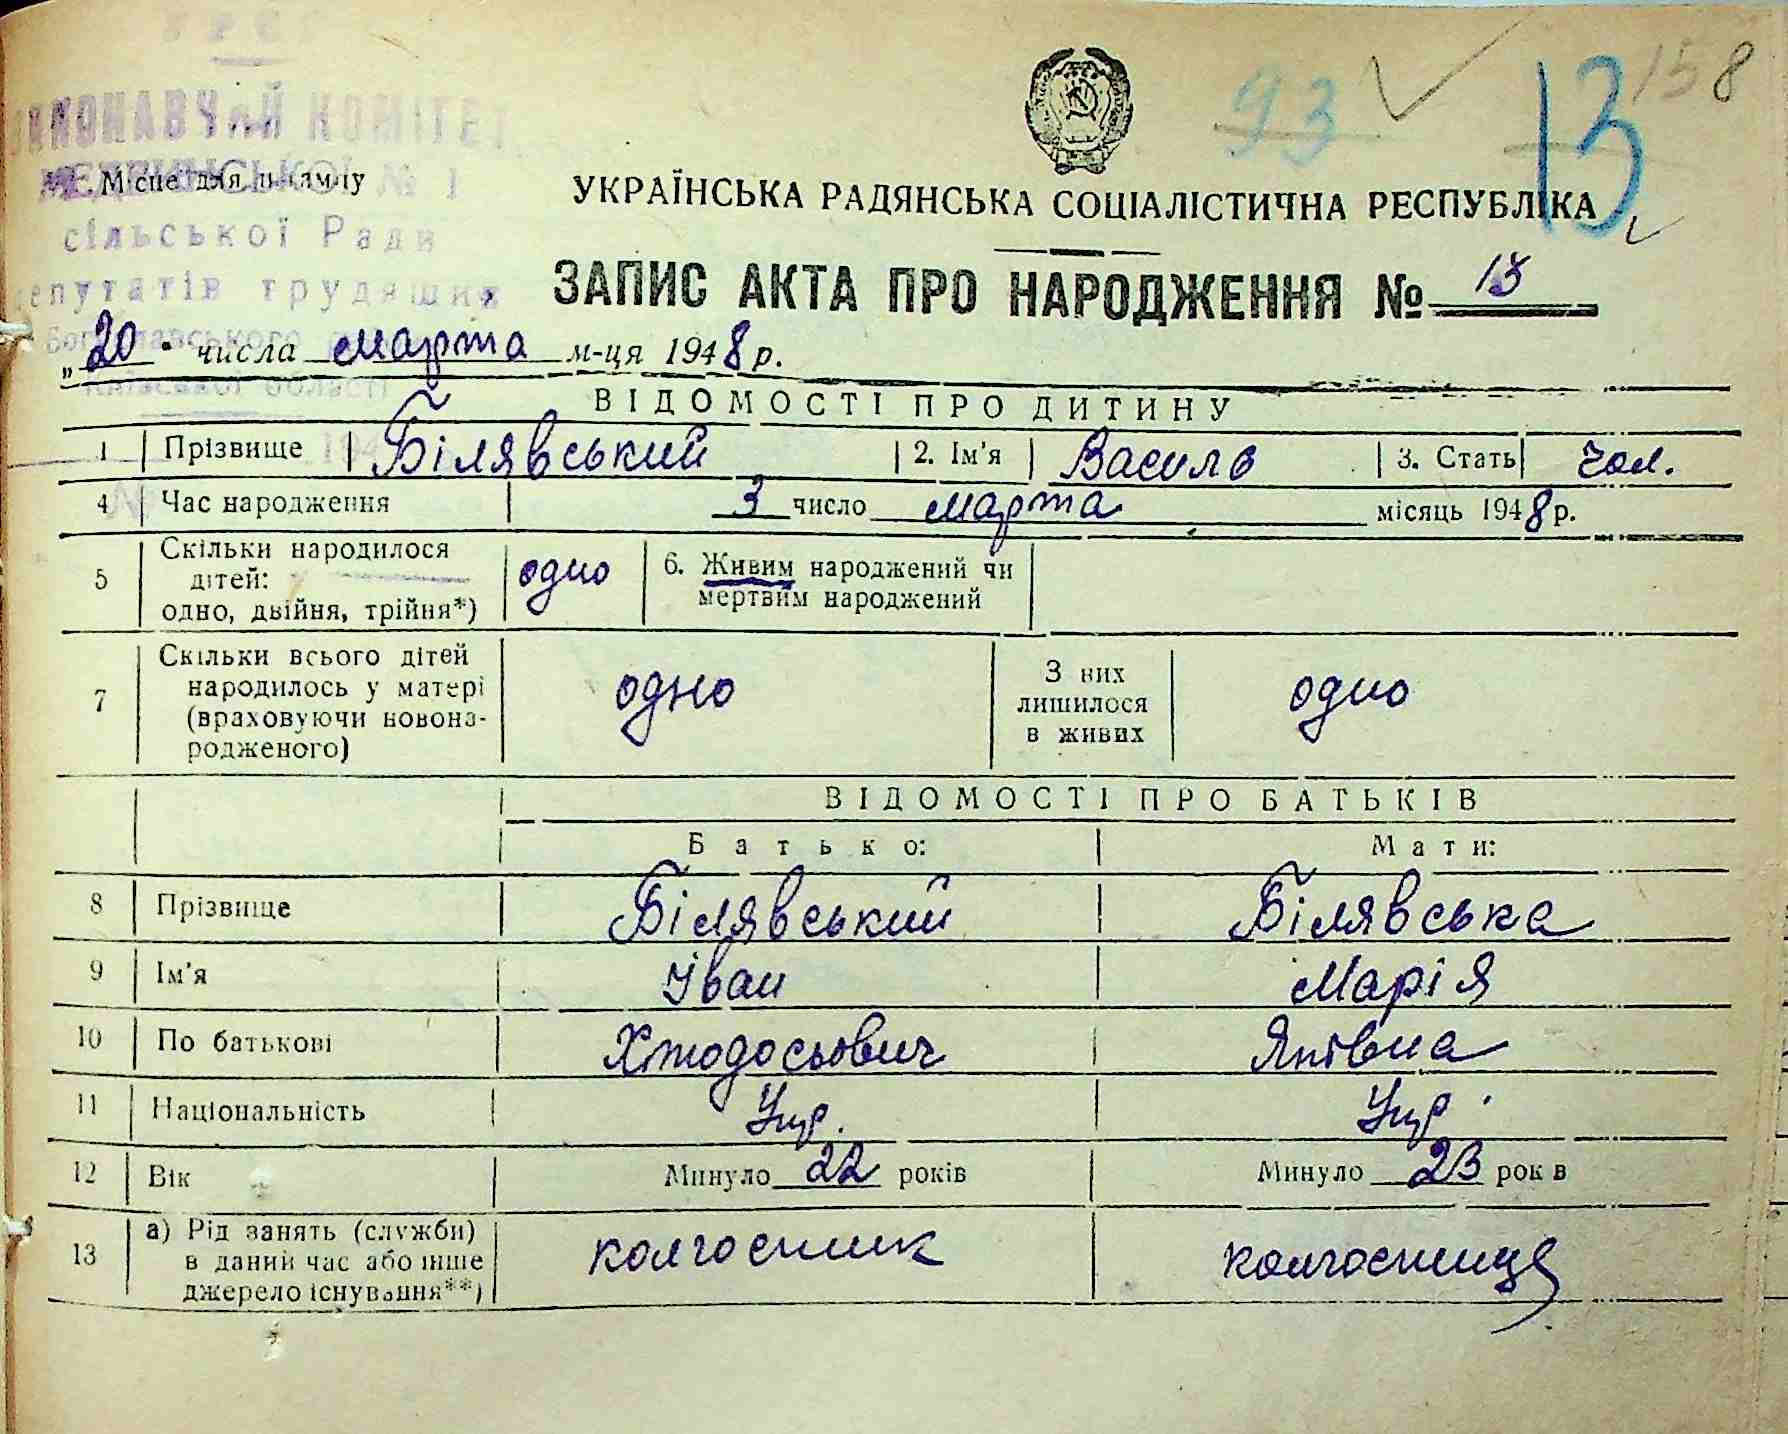 УРСР
ВИКОНАВЧИЙ КОМІТЕТ
МЕДВИНСЬКОЇ № 1
Місце для штампу
сільської Ради
депутатів трудящих
Богуславського
Київської області
93
13
158
УКРАЇНСЬКА РАДЯНСЬКА СОЦІАЛІСТИЧНА РЕСПУБЛІКА
ЗАПИС АКТА ПРО НАРОДЖЕННЯ № 13
„20" числа марта м-ця 1948 р.
ВІДОМОСТІ ПРО ДИТИНУ
1 Прізвище Білявський 2. Ім'я Василь 3. Стать чол.
4 Час народження 3 число марта місяць 1948 р.
5 Скільки народилося дітей: одно, двійня, трійня*) одно 6. Живим народжений чи мертвим народжений
7 Скільки всього дітей народилось у матері (враховуючи новонародженого) одно З них лишилося в живих одно
ВІДОМОСТІ ПРО БАТЬКІВ
Батько: Мати:
8 Прізвище Білявський Білявська
9 Ім'я Іван Марія
10 По батькові Хтодосьович Яківна
11 Національність Укр. Укр.
12 Вік Минуло 22 років Минуло 23 років
13 а) Рід занять (служби) в даний час або інше джерело існування**) колгоспник колгоспниця